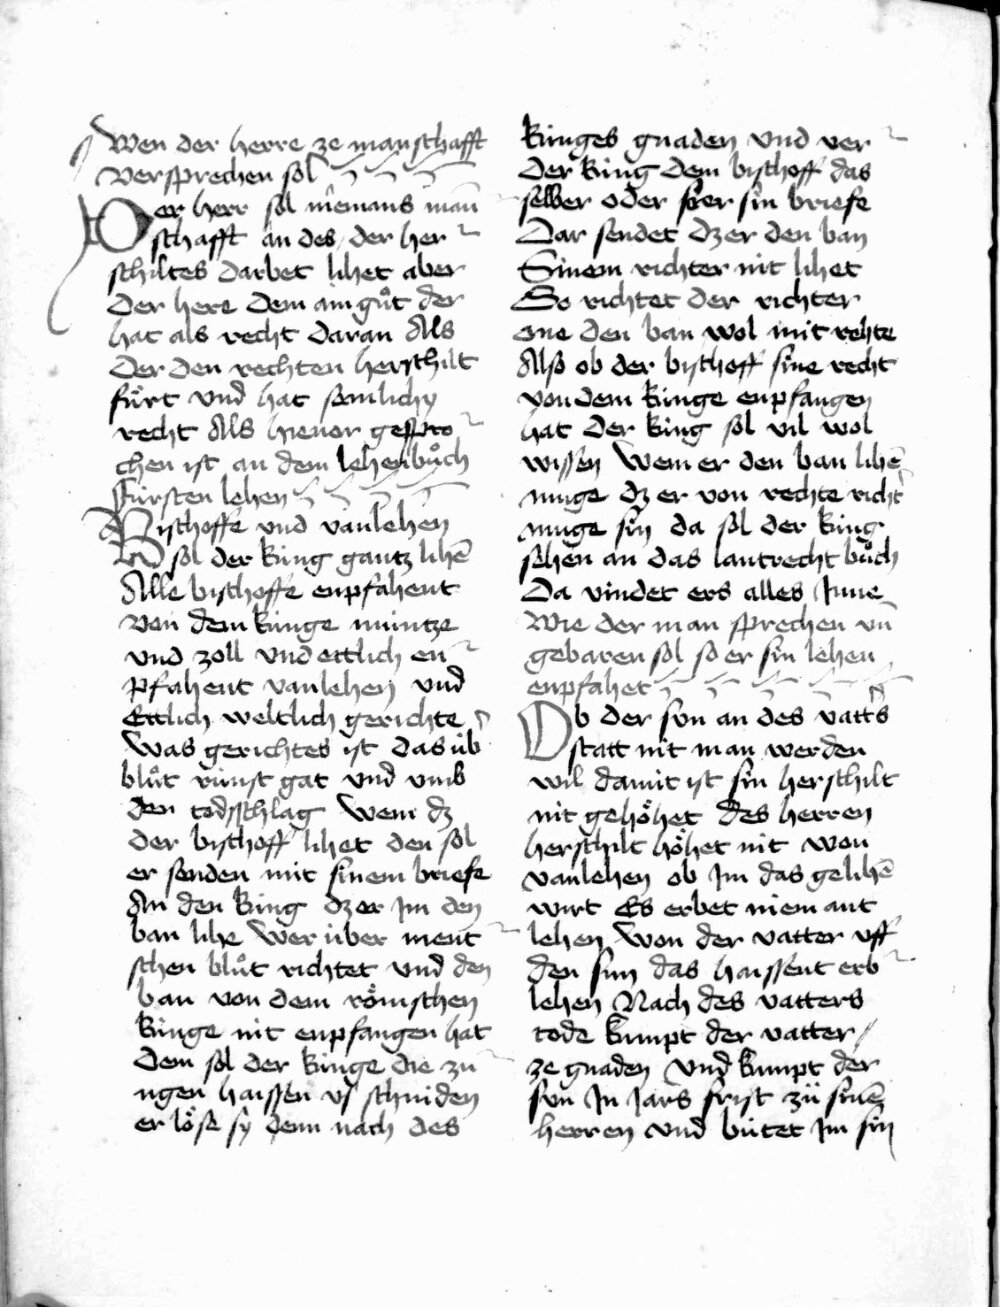 Wen der herre ze manschafft
versprechen sol
Der herr sol niemans man
schafft an des der her
schiltes darbet lihet aber
Der here dem ain guͦt der
hat als recht daran Als
Der den rechten herschilt
fuͤrt vnd hat semlichv
recht Als hievor gespro
chen ist an dem lehenbuͦch
Fürsten lehen
Bischoffe vnd vanlehen
sol der küng gantz lihē
Alle bischoffe enpfahent
von dem künge müntze
vnd zoll vnd ettlich en
pfahent vanlehen vnd
Ettlich weltlich gerichte
Was gerichtes ist das üb
bluͦt rünst gat vnd vmb
den todschlag Wem dz
der bischoff lihet den sol
er senden mit sinem briefe
An den küng dz er Im den
ban lihe Wer über ment
schen bluͦt richtet vnd den
ban von dem römschen
künge nit enpfangen hat
Dem sol der künge die zu
ngen haissen vs schniden
er löse sy denn nach des
künges gnaden vnd ver
der küng dem bischoff das
selber oder fver sin briefe
Dar sendet dz er den ban
Sinem richter nit lihet
So richtet der richter
one den ban wol mit rehte
Also ob der bischoff sine recht
von dem künge enpfangen
hat Der küng sol vil wol
wissen Wem er den ban lihē
muge dz er von rechte richt
muge sin da sol der küng
sehen an das lantrecht buͦch
Da vindet ers alles Inne
Wie der man sprechen vn̄
gebaren sol so er sin lehen
enpfahet
Ob der svn an des vatt's
statt nit man werden
wil damit ist sin herschilt
nit gehöhet des herren
herschilt höhet nit won
vanlehen ob Im das gelihē
wirt Es erbet niemant
lehen Won der vatter vff
den sun das haissent erb
lehen Nach des vatters
tode kumpt der vatter
ze gnaden vnd kumpt der
svn In Jars frist zü sinē
herren vnd bütet Im sin